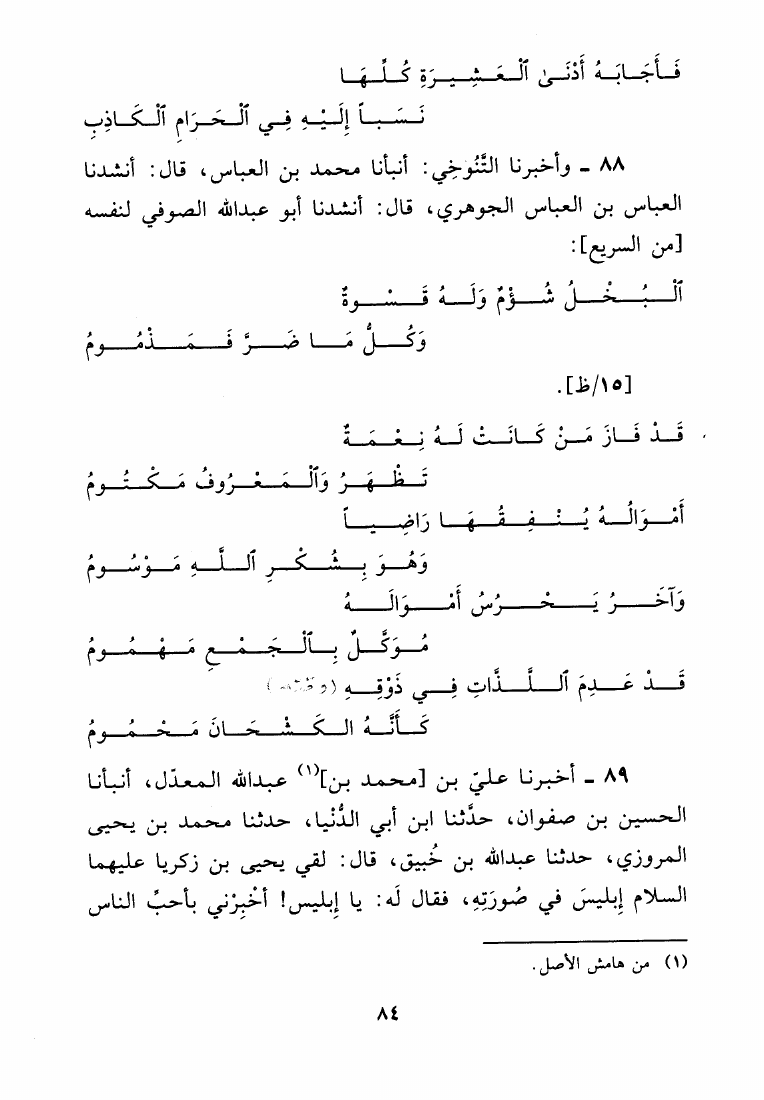 فَأَجَابَهُ أَدْنَىٰ ٱلْعَشِيرَةِ كُلِّهَا
نَسَباً إِلَيْهِ فِي ٱلْحَرَامِ ٱلْكَاذِبِ
٨٨ - وأخبرنا التَّنُوخِي: أنبأنا محمد بن العباس، قال: أنشدنا
العباس بن العباس الجوهري، قال: أنشدنا أبو عبدالله الصوفي لنفسه
[من السريع]:
ٱلْبُخْلُ شُؤْمٌ وَلَهُ قَسْوَةٌ
وَكُلُّ مَا ضَرَّ فَمَذْمُومُ
[١٥/ظ].
قَدْ فَازَ مَنْ كَانَتْ لَهُ نِعْمَةٌ
تَظْهَرُ وَٱلْمَعْرُوفُ مَكْتُومُ
أَمْوَالُهُ يُنْفِقُهَا رَاضِياً
وَهْوَ بِشُكْرِ ٱللَّهِ مَوْسُومُ
وَآخَرُ يَحْرُسُ أَمْوَالَهُ
مُوَكَّلٌ بِٱلْجَمْعِ مَهْمُومُ
قَدْ عَدِمَ ٱللَّذَّاتِ فِي ذَوْقِهِ
كَأَنَّهُ الكَشْحَانَ مَحْمُومُ
٨٩ - أخبرنا عليّ بن [محمد بن](١) عبدالله المعدّل، أنبأنا
الحسين بن صفوان، حدَّثنا ابن أبي الدُّنْيا، حدثنا محمد بن يحيى
المروزي، حدثنا عبدالله بن خُبيق، قال: لقي يحيى بن زكريا عليهما
السلام إبليسَ في صُورَتِهِ، فقال لَه: يا إبليس! أخْبِرْني بأحبِّ الناس
(١) من هامش الأصل.
٨٤